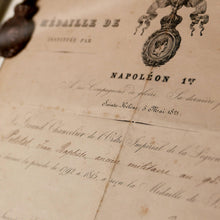 MÉDAILLE DE
INSTITUÉE PAR
NAPOLÉON 1er
A ses Compagnons de gloire, Sa dernière
Sainte Hélène, 5 Mai 1821
Le Grand Chancelier de l'Ordre Impérial de la Légion
Jean Baptiste, ancien militaire au
durant la période de 1792 à 1815, a reçu la Médaille de